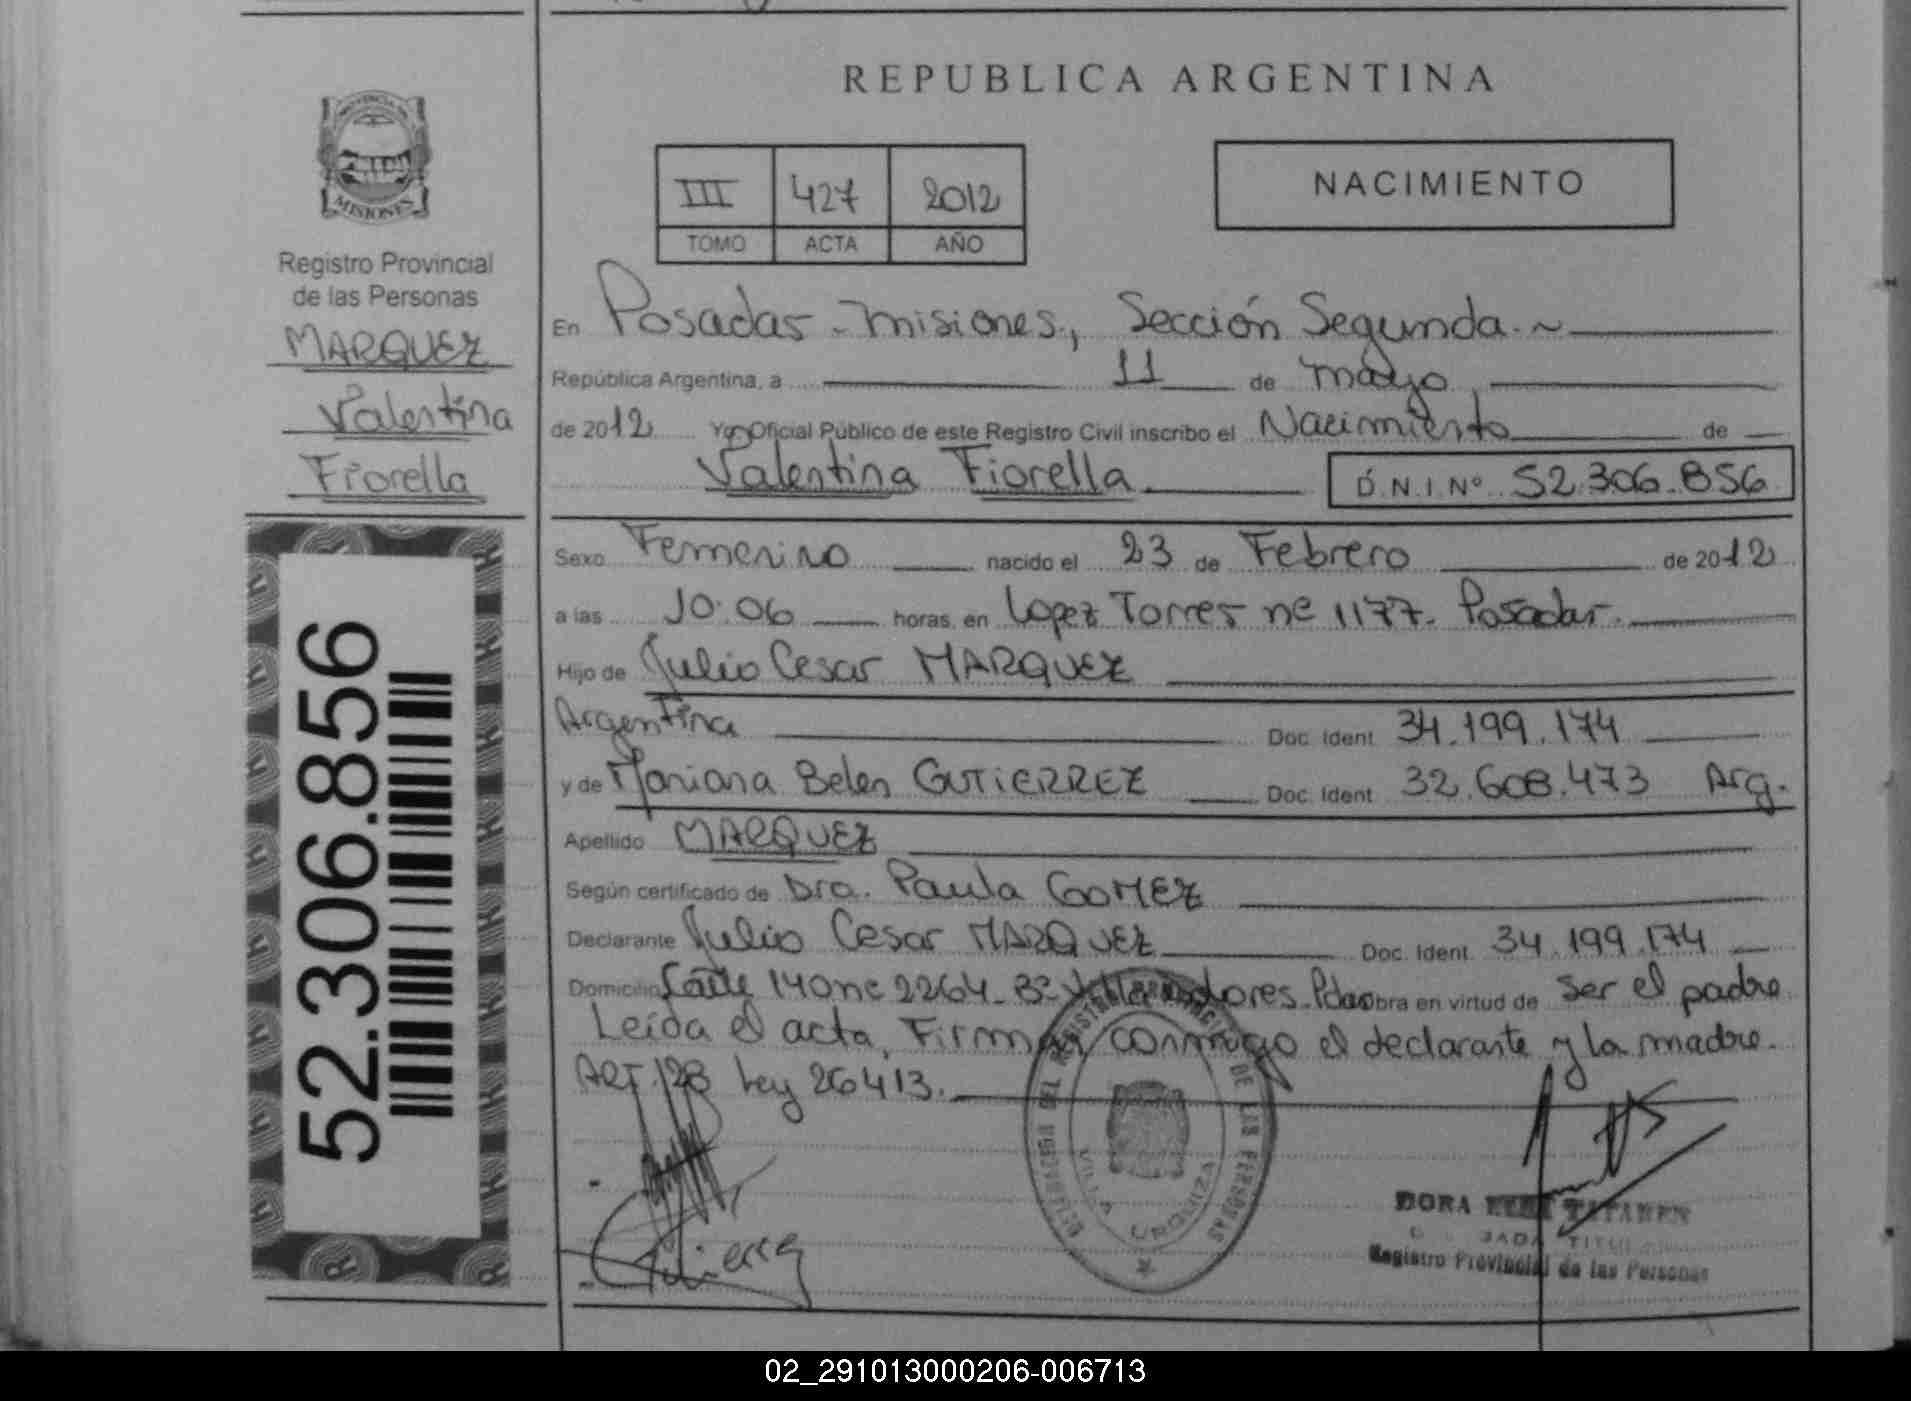 REPUBLICA ARGENTINA
PROVINCIA DE
MISIONES
Registro Provincial
de las Personas
MARQUEZ
Valentina
Fiorella
52.306.856
III 427 2012
TOMO ACTA AÑO
NACIMIENTO
En Posadas - Misiones, Sección Segunda.~
República Argentina, a 11 de mayo
de 2012 Yo, Oficial Público de este Registro Civil inscribo el Nacimiento de
Valentina Fiorella D.N.I.Nº 52.306.856
Sexo Femenino nacido el 23 de Febrero de 2012
a las 10:06 horas, en Lopez Torres nº 1177. Posadas.
Hijo de Julio Cesar MARQUEZ
Argentina Doc. Ident. 34.199.174
y de Mariana Belen GUTIERREZ Doc. Ident. 32.608.473 Arg.
Apellido MARQUEZ
Según certificado de Dra. Paula GOMEZ
Declarante Julio Cesar MARQUEZ Doc. Ident. 34.199.174
Domicilio Calle 140 nº 2264- Bº Pdas Obra en virtud de ser el padre
Leída el acta, Firman conmigo el declarante y la madre.
ART. 28 Ley 26413.
DEL REGISTRO PROVINCIAL DE LAS PERSONAS
VILLA URQUIZA
DORA
Registro Provincial de las Personas
02_291013000206-006713